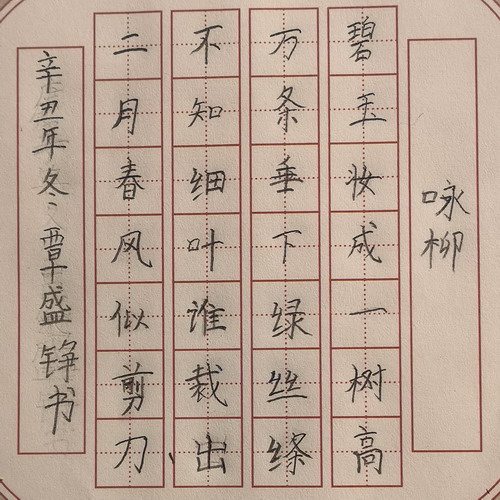 咏柳
碧玉妆成一树高
万条垂下绿丝绦
不知细叶谁裁出、
二月春风似剪刀
辛丑年冬、覃盛铮书